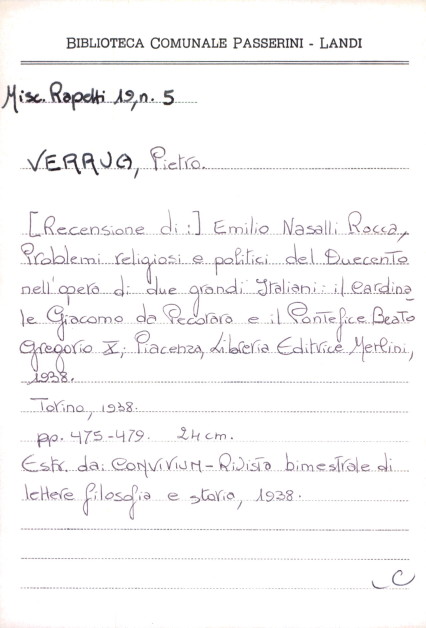 BIBLIOTECA COMUNALE PASSERINI - LANDI
Misc. Rapetti 19, n. 5
VERRUA, Pietro.
[Recensione di:] Emilio Nasalli Rocca,
Problemi religiosi e politici del Duecento
nell'opera di due grandi Italiani: il Cardina
le Giacomo da Pecorara e il Pontefice Beato
Gregorio X; Piacenza, Libreria Editrice Merlini,
1938.
Torino, 1938.
pp. 475-479. 24 cm.
Estr. da: CONVIVIUM - Rivista bimestrale di
lettere filosofia e storia, 1938.
C